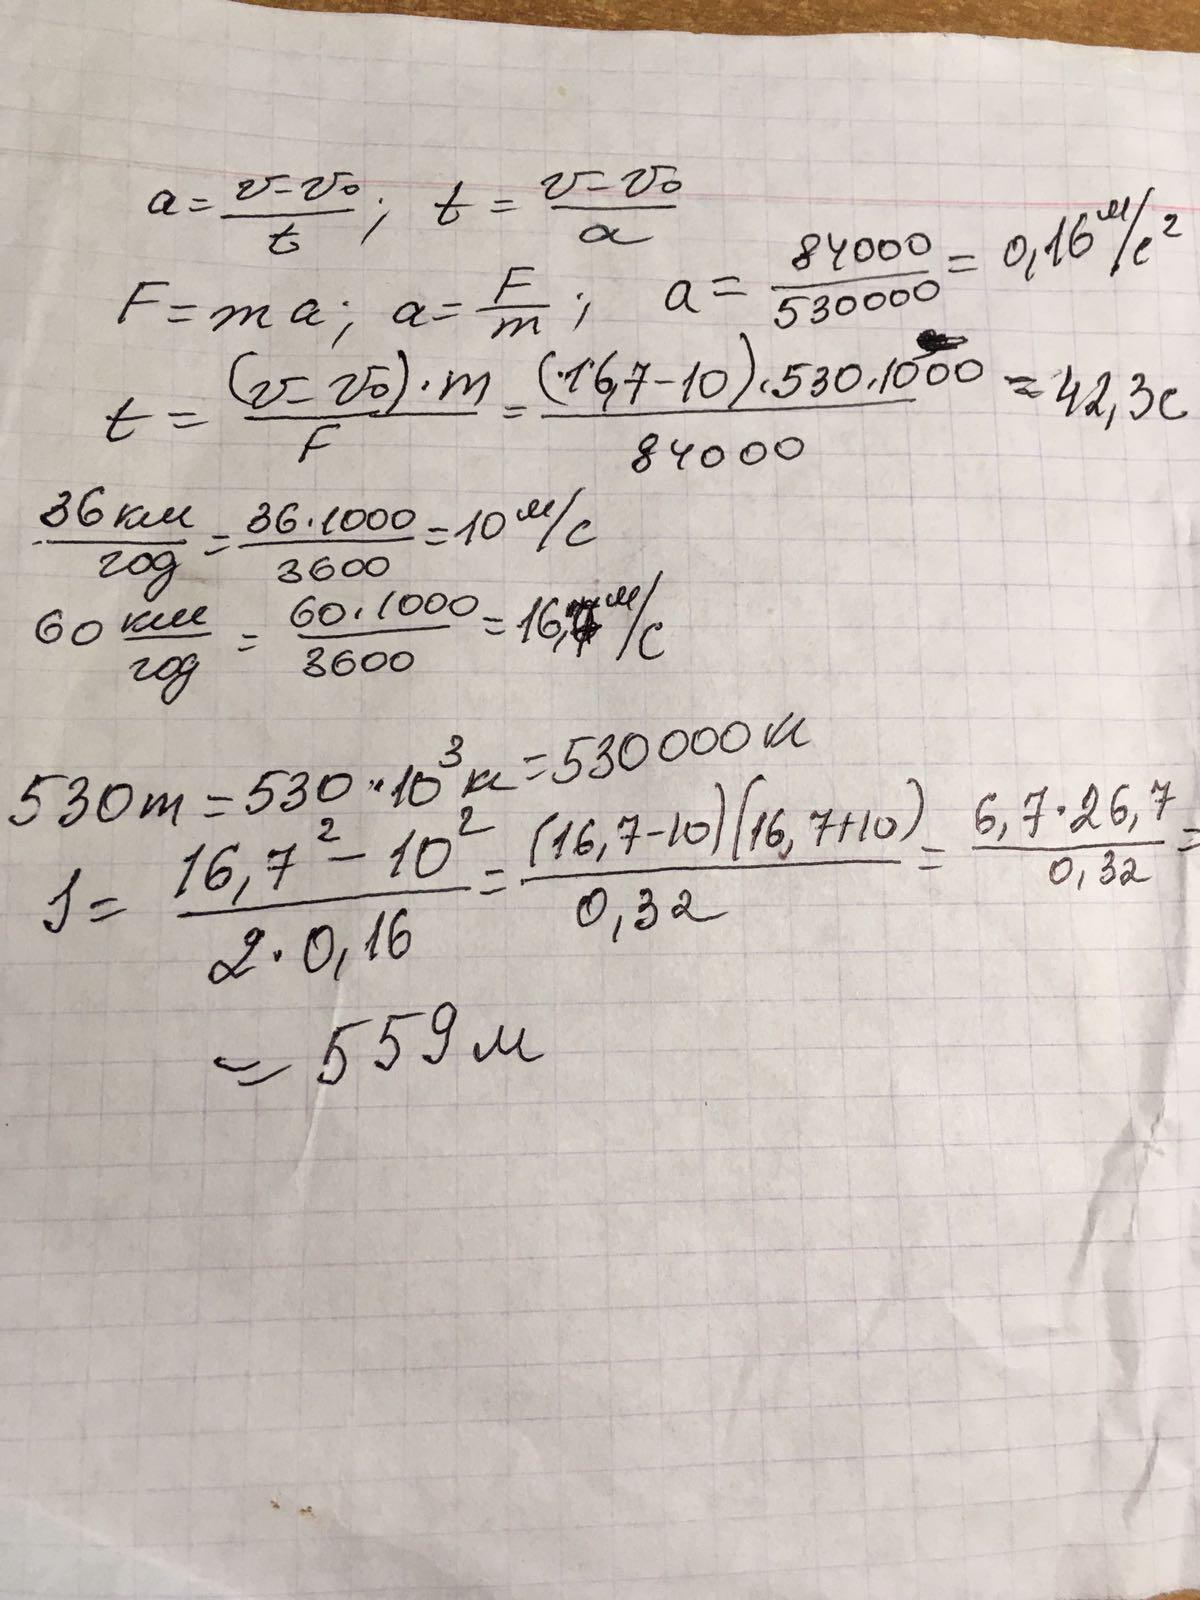 a = (v - v₀)/t ; t = (v - v₀)/a
F = m a ; a = F/m ; a = 84000/530000 = 0,16 м/с²
t = ((v - v₀) · m)/F = ((16,7 - 10) · 530 · 1000)/84000 = 42,3 с
36 км/год = (36 · 1000)/3600 = 10 м/с
60 км/год = (60 · 1000)/3600 = 16,7 м/с
530 т = 530 · 10³ кг = 530000 кг
S = (16,7² - 10²)/(2 · 0,16) = ((16,7 - 10)(16,7 + 10))/0,32 = (6,7 · 26,7)/0,32 =
= 559 м